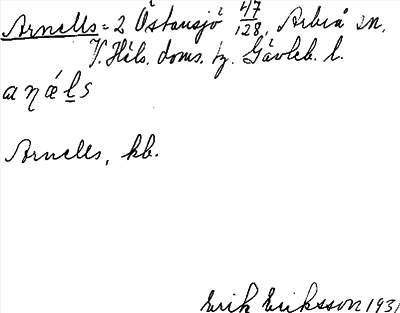 Arnells = 2 Östansjö 47/128, Arbrå sn,
V. Häls. doms. tg. Gävleb. l.
aŋæls
Arnells, kb.
Erik Eriksson 1931